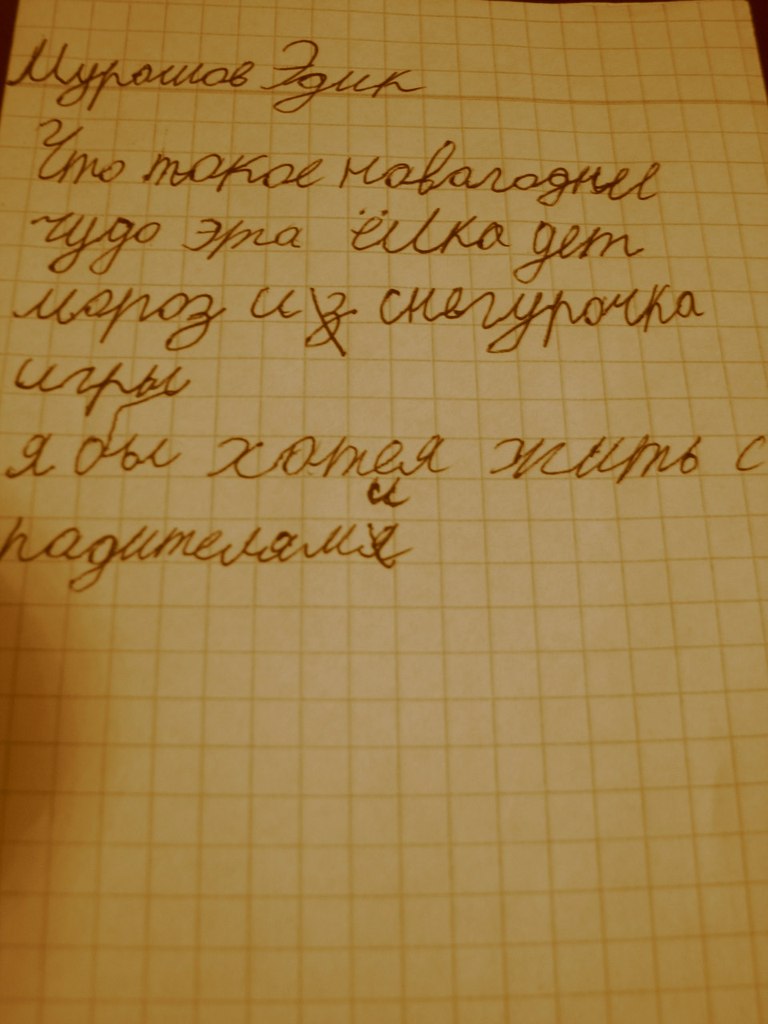 Мурашов Эдик
Что такое новагодние
чудо эта ёлка дет
мороз и снегурочка
игры
я бы хотея жить с
радителями